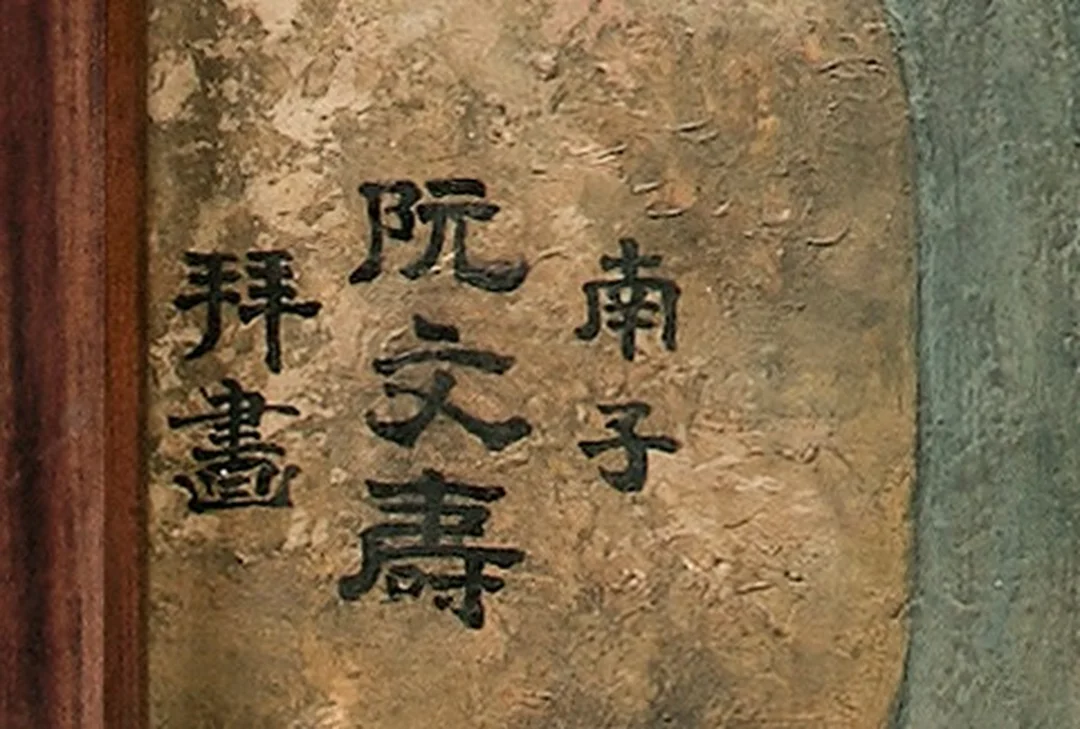 南子
阮文壽
拜畫